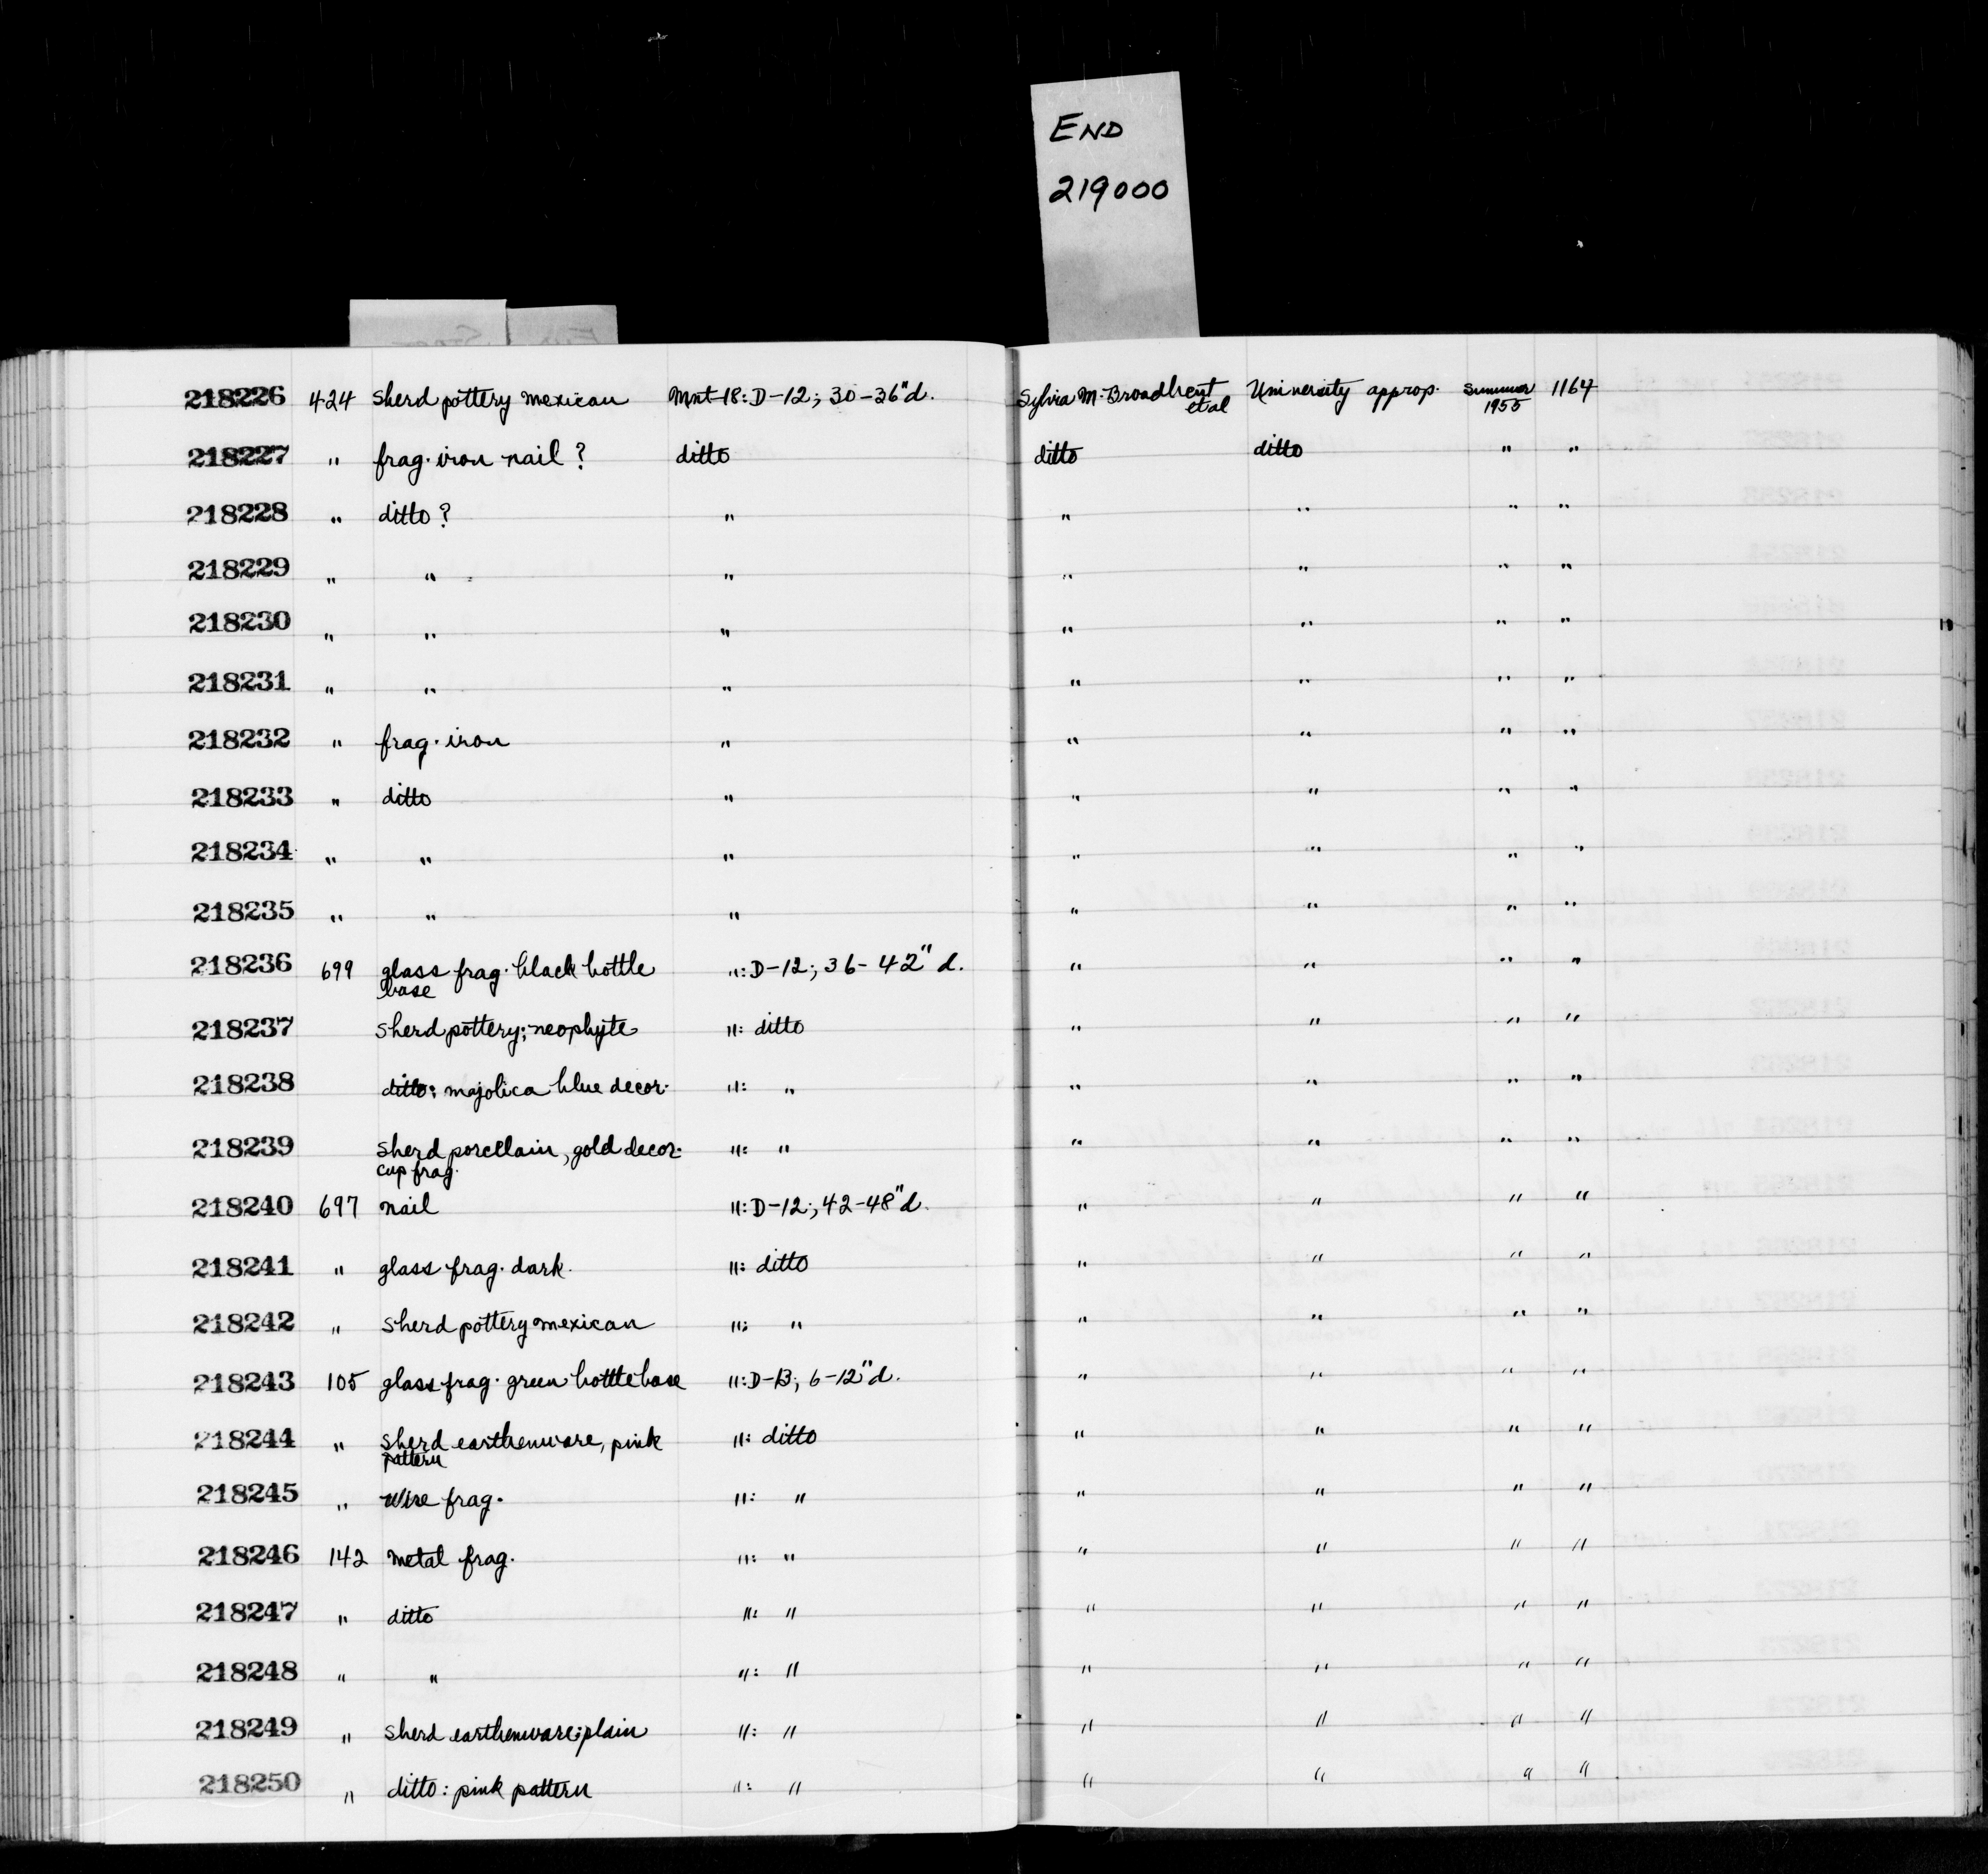 END
219000
218226 424 sherd pottery mexican Mnt-18: D-12; 30-36"d. Sylvia M. Broadbent University approp. Summer 1164
et al 1955
218227 " frag. iron nail? ditto ditto ditto " "
218228 " ditto? " " " " "
218229 " " " " " " "
218230 " " " " " " "
218231 " " " " " " "
218232 " frag. iron " " " " "
218233 " ditto " " " " "
218234 " " " " " " "
218235 " " " " " " "
218236 699 glass frag. black bottle ": D-12; 36-42" d. " " " "
base
218237 sherd pottery; neophyte ": ditto " " " "
218238 ditto: majolica blue decor. ": " " " " "
218239 sherd porcellain, gold decor. ": " " " " "
cup frag.
218240 697 nail ": D-12; 42-48"d. " " " "
218241 " glass frag. dark. ": ditto " " " "
218242 " sherd pottery mexican ": " " " " "
218243 105 glass frag. green bottle base ": D-13; 6-12"d. " " " "
218244 " sherd earthenware, pink ": ditto " " " "
pattern
218245 " wire frag. ": " " " " "
218246 142 metal frag. ": " " " " "
218247 " ditto ": " " " " "
218248 " " ": " " " " "
218249 " sherd earthenware; plain ": " " " " "
218250 " ditto: pink pattern ": " " " " "